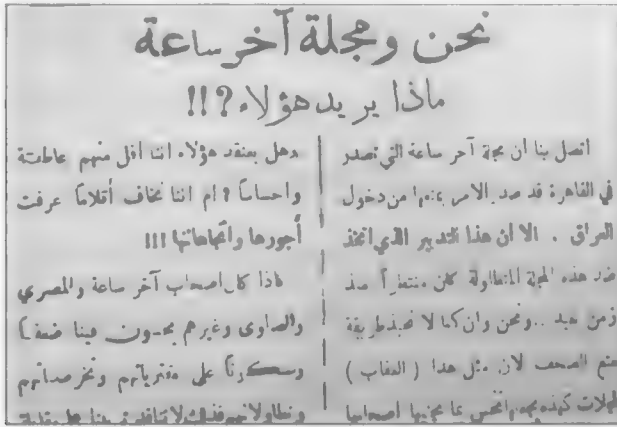 نحن ومجلة آخر ساعة
ماذا يريد هؤلاء ? !!
اتصل بنا ان مجلة آخر ساعة التي تصدر
في القاهرة قد صدر الامر بمنعها من دخول
العراق . الا ان هذا التدبير الذي اتخذ
ضد هذه المجلة المتطاولة كان منتظراً منذ
زمن بعيد .. ونحن وان كنا لا نحبذ طريقة
منع الصحف لان مثل هذا ( العقاب )
لمجلات كهذه يجعلها تحس بما يجنيها اصحابها
وهل يعتقد هؤلاء اننا اقل منهم عاطفة
واحساساً ? ام اننا نخاف أقلاماً عرفت
أجورها واتجاهاتها !!!
فاذا كان اصحاب آخر ساعة والمصري
والصاوي وغيرهم يحسون فينا ضعفاً
وسكوتاً على مفترياتهم وتخرصاتهم